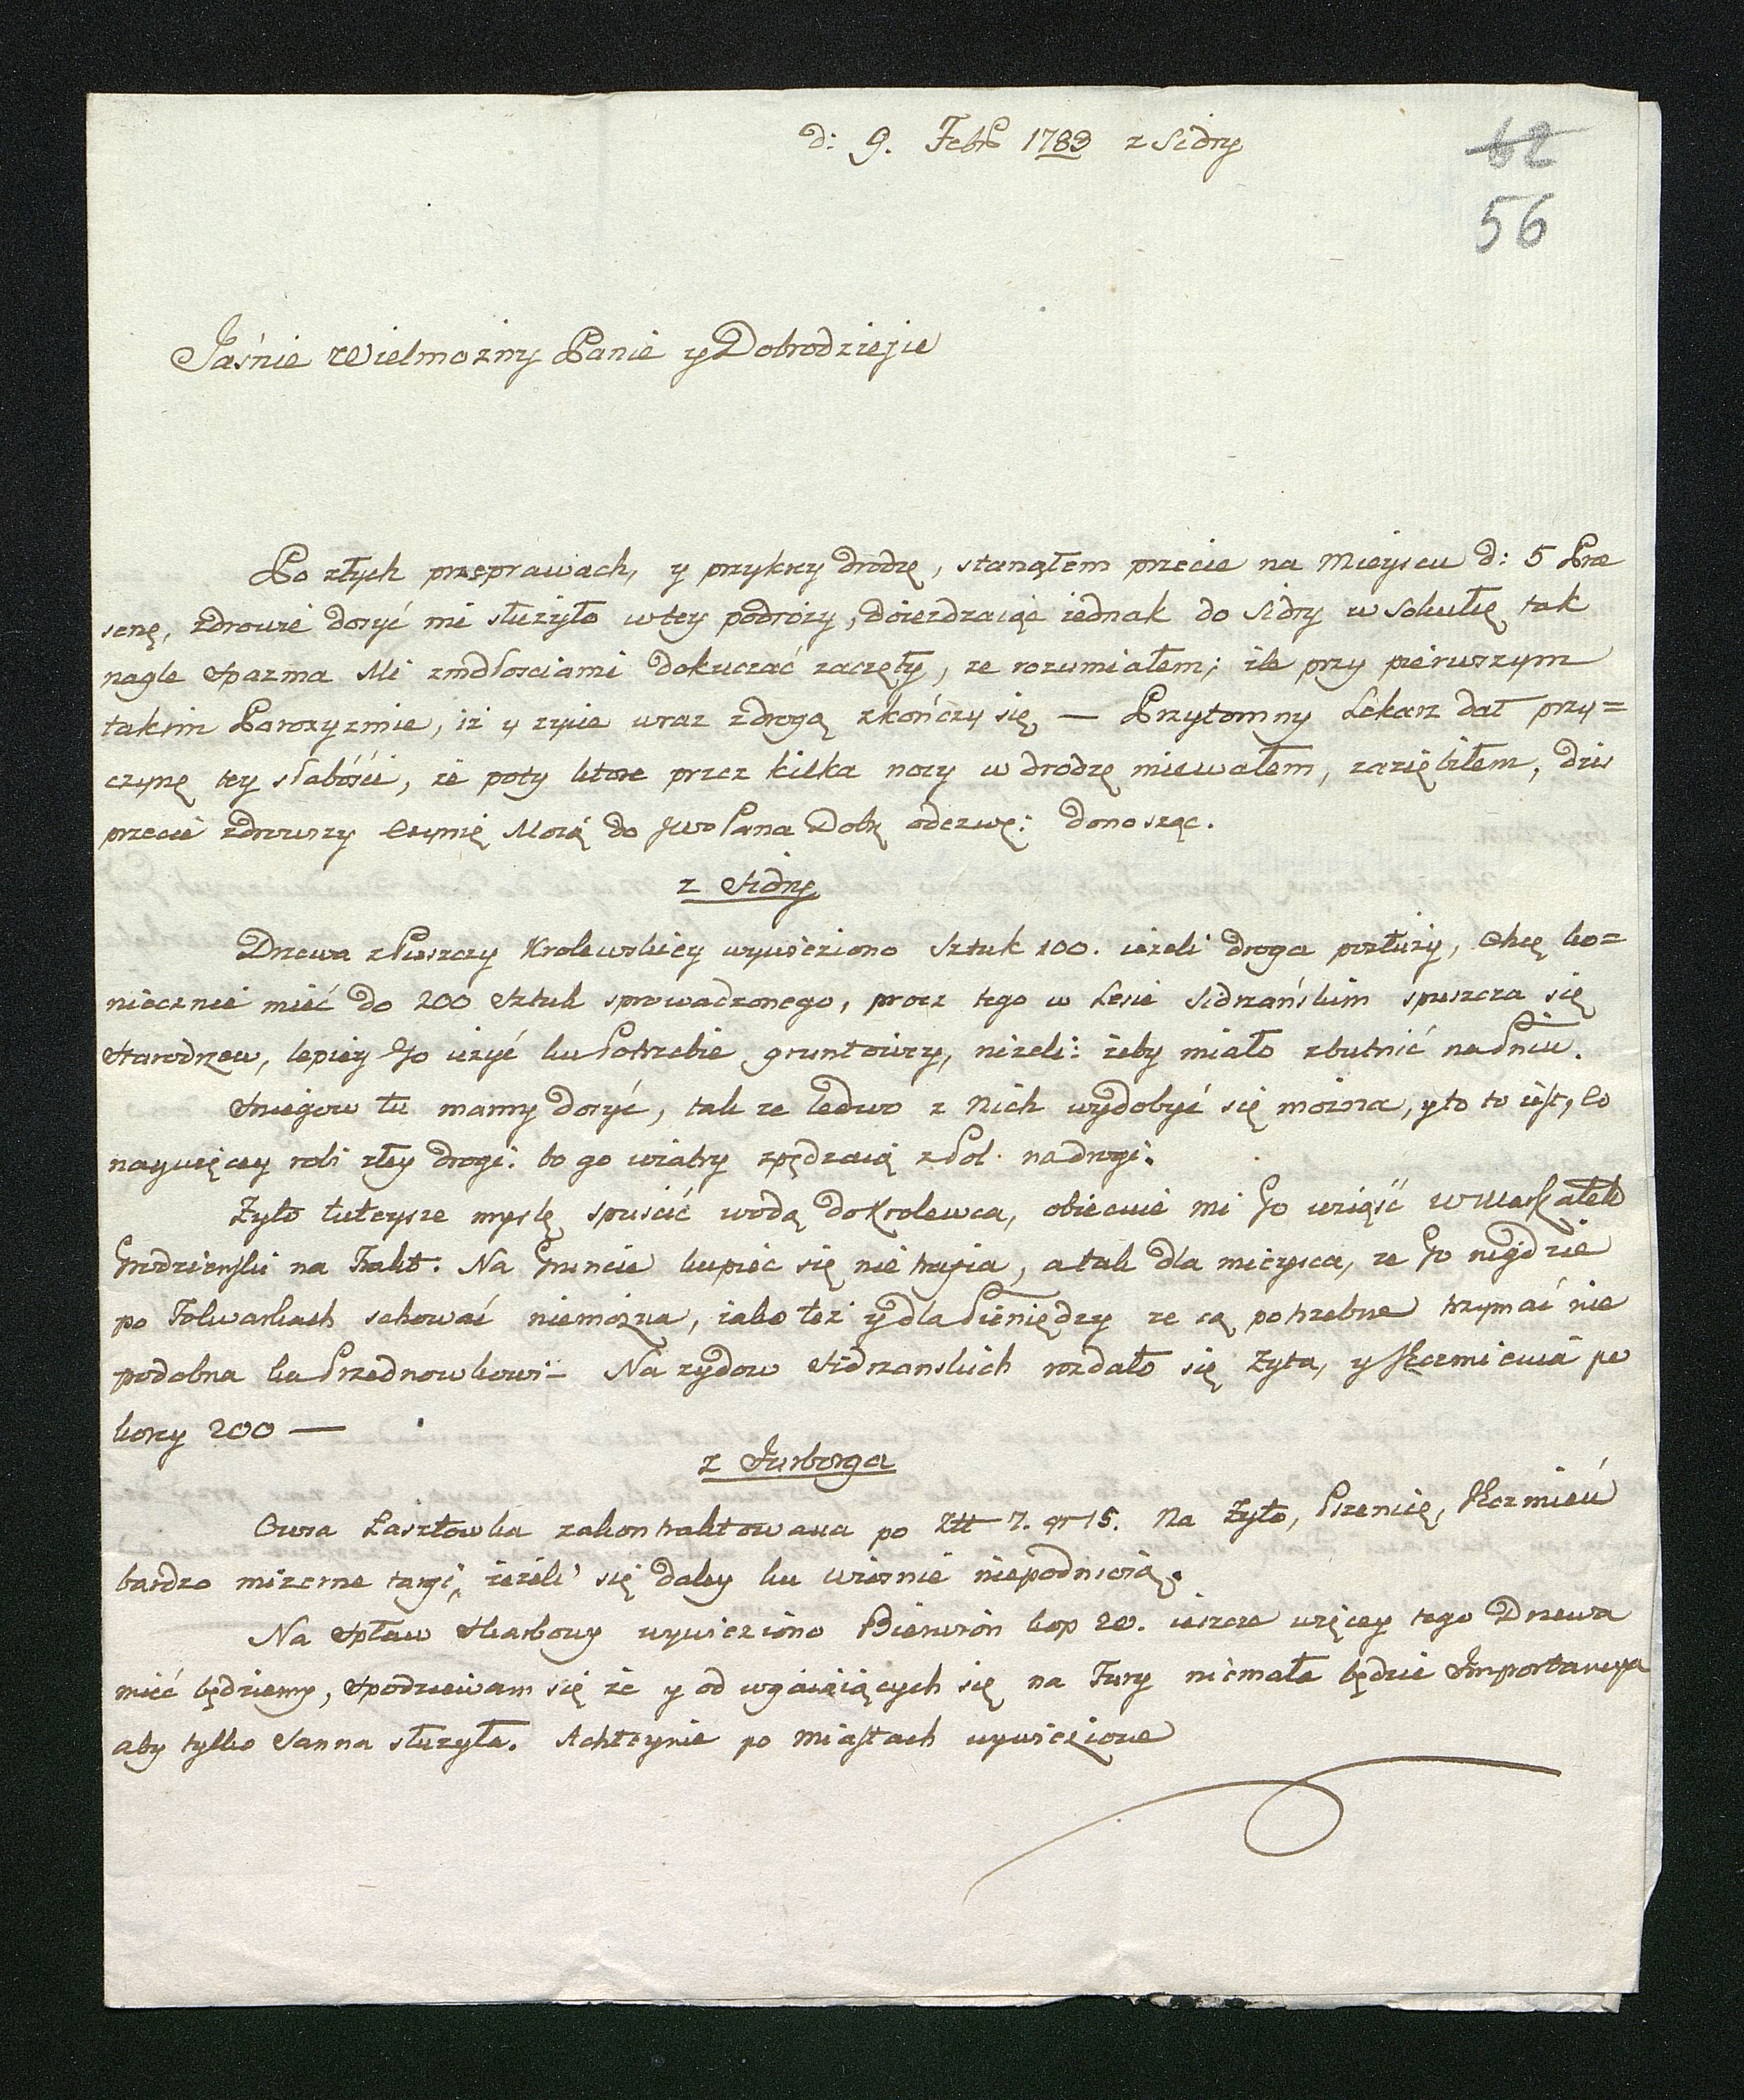 d: 9. Febr 1783 z Sidry
62
56
Jaśnie Wielmozny Panie y Dobrodzieyie
Po złych przeprawach, y przykry drodzę, stanąłem przecie na Mieyscu d: 5 Prae
senę, zdrowie dosyć mi służyło w tey podróży, doiezdzaiąc iednak do Sidry w Sokułkę tak
nagle Spazma Mi zmdłosciami dokuczać zaczęły, ze rozumiałem; ile przy pierwszym
takim Paroxyzmie, iż y zycie wraz z drogą zkończy się, — Przytomny Lekarz dał przy=
czynę tey słabości, że poty ktore przez kilka nocy w drodzę miewałem, zaziębiłem, dzis
przecie zdrowszy Czynię Moią do JWo Pana Dobr odezwę: donosząc.
z Sidry
Drzewa z Puszczy Krolewskiey wywieziono Sztuk 100. ieżeli droga posłuży, Chcę ko=
niecznie mieć do 200 Sztuk sprowadzonego, procz tego w Lesie Sidrzańskim spuszcza się
Starodrzew, lepiey Jo użyć ku Potrzebie gruntowey, niżeli: żeby miało zbutnić na Pniu.
Sniegow tu mamy dosyć, tak ze ledwo z Nich wydobyć się można, y to to iest, Co
naywięcey robi złey drogi: bo go wiatry spędzaią z Pol na drogi.
Zyto tuteysze myslę spuścić wodą do Krolewca, obiecuie mi Jo wziąść W Marszałek
Grodzienski na Trakt. Na Gruncie kupiec się nie trafia, a tak dla mieysca, ze Jo nigdzie
po Folwarkach schować niemożna, iako też y dla Pieniędzy ze są potrzebne trzymać nie
podobna ku Przednowkowi — Na zydow Sidrzanskich rozdało się Zyta, y Jęczmienia po
korcy 200 —
z Jurborga
Owsa Łasztowka zakontraktowana po Złł 7. gr 15. Na Zyto, Pszenicę, Jęczmień
bardzo mizerne targi, ieżeli się daley ku wiosnie niepodniosą.
Na Spław Skarbowy wywieziono Bierwion kop 20. ieszcze więcey tego Drzewa
mieć będziemy, Spodziewam się że y od wgaiaiących się na Fury niemała będzie Importancya
aby tylko Sanna służyła. Achteynie po Miastach wywiezione